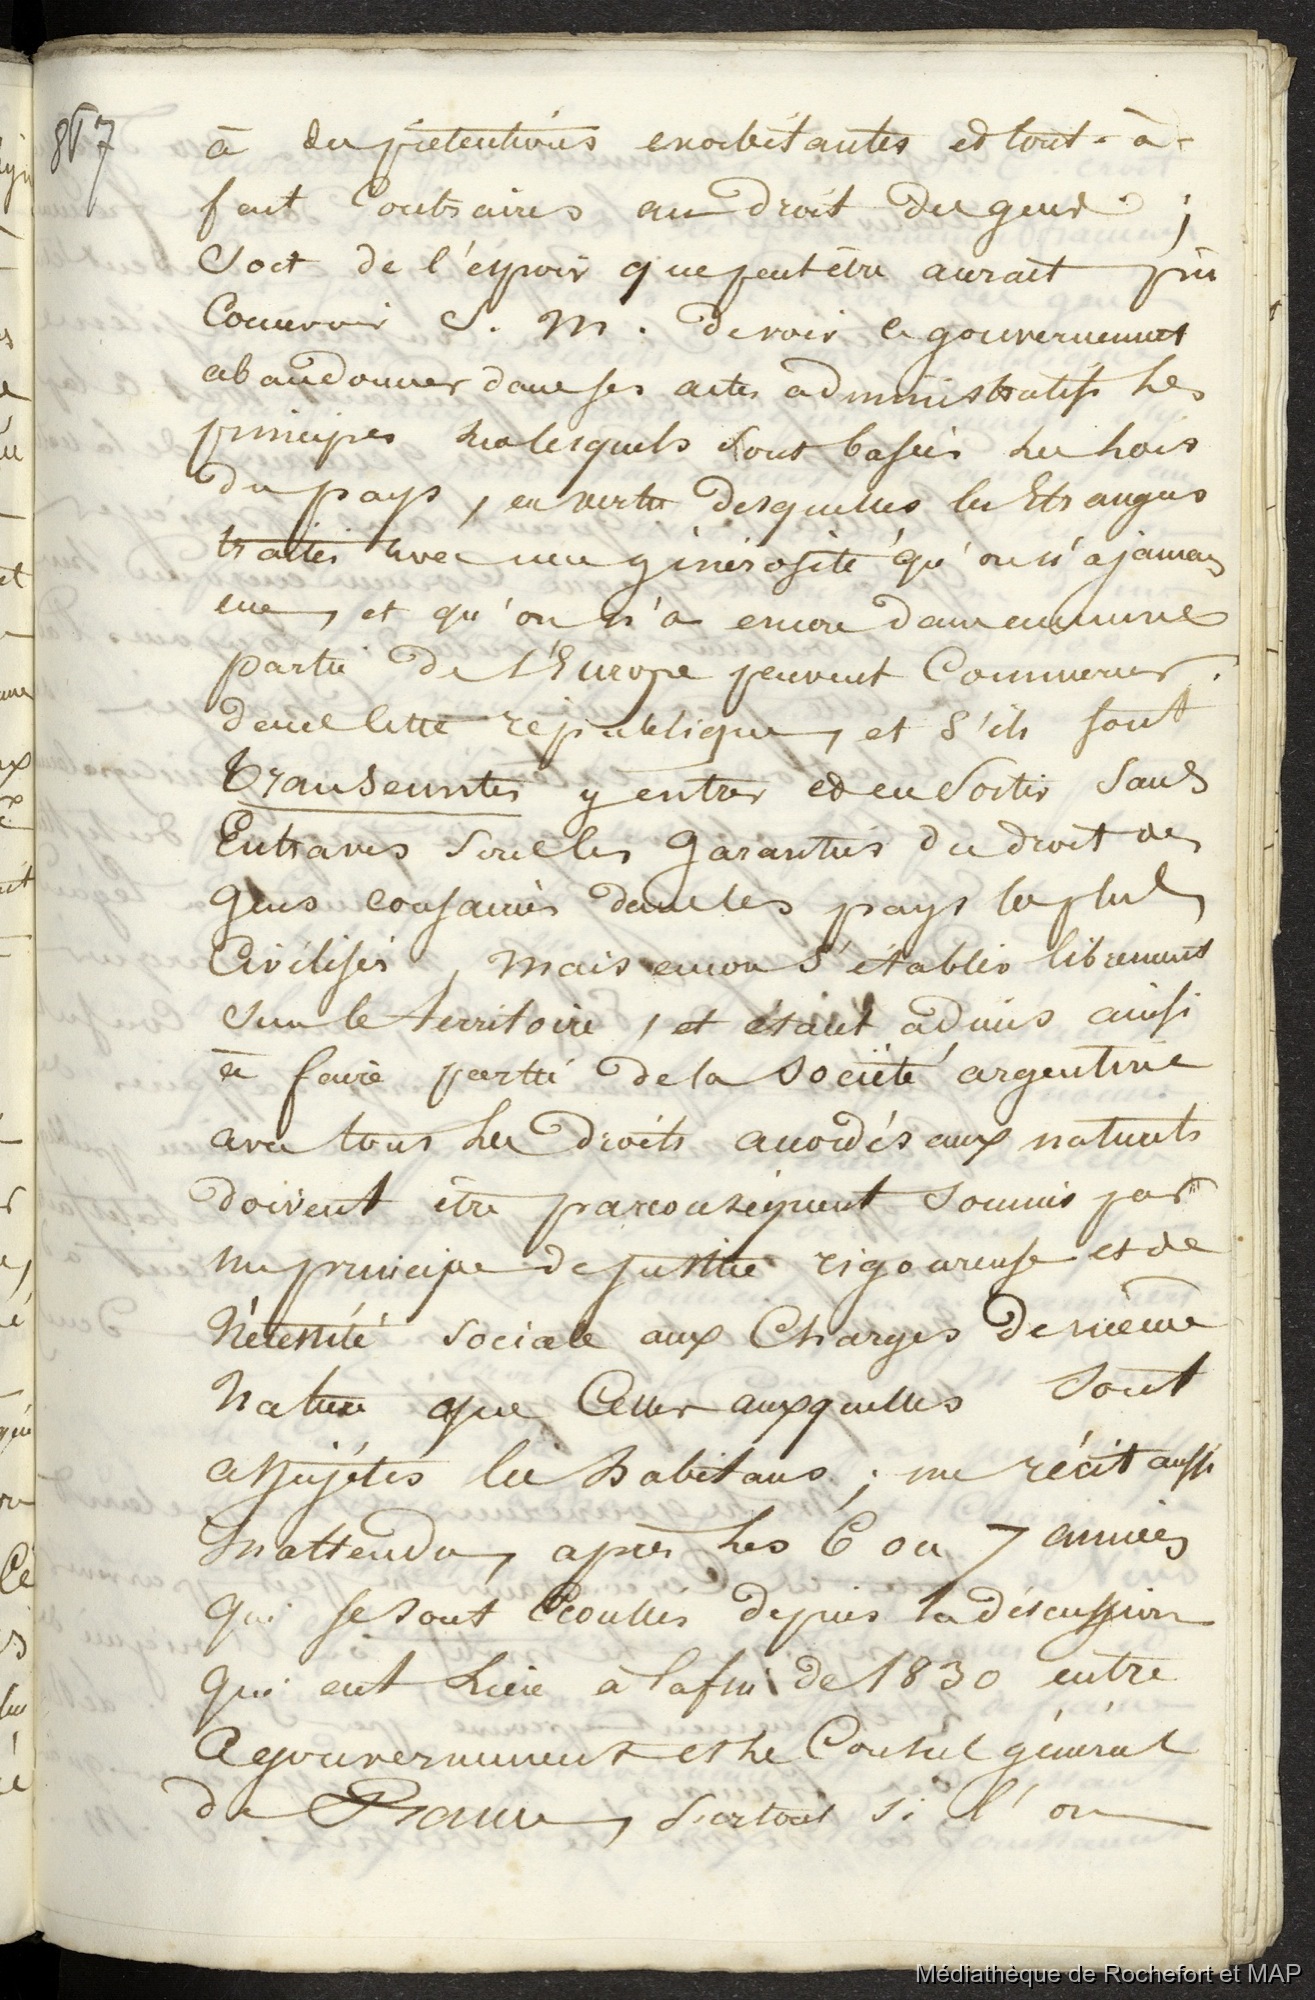 857
à des prétentions exorbitantes et tout-à-
fait contraires au droit des gens ;
soit de l'espoir que peut être aurait pû
Concevoir S. M. de voir ce gouvernement
abandonner dans ses actes administratifs les
principes sur lesquels sont basées les lois
du pays, en vertu desquelles les Etrangers
traités avec une générosité qu'on n'a jamais
eue, et qu'on n'a encore dans aucune
partie de l'Europe peuvent Commercer
dans cette république, et s'ils sont
Transeuntes y entrer et en sortir sans
Entraves sous les garanties du droit des
gens consacrés dans les pays les plus
Civilisés, mais encore s'établir librement
sur le territoire, et étant admis ainsi
à faire partie de la société argentine
avec tous les droits accordés aux naturels
doivent être par conséquent soumis par
un principe de justice rigoureuse et de
Nécessité sociale aux Charges de même
Nature que Celles auxquelles sont
assujétés les habitans ; un récit aussi
Inattendu, après les 6 ou 7 années
qui se sont écoulées depuis la discussion
qui eut lieu à la fin de 1830 entre
ce gouvernement et le Consul général
de France, surtout si l'on
Médiathèque de Rochefort et MAP